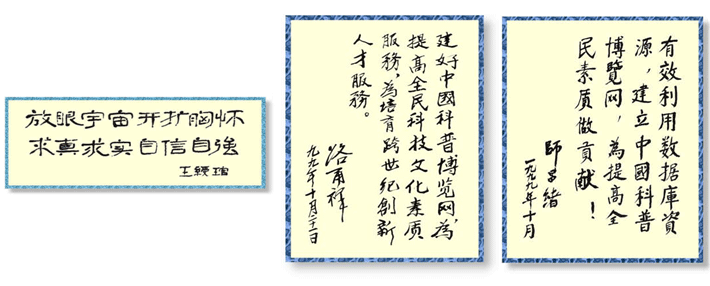 放眼宇宙开扩胸怀
求真求实自信自強
王綬琯
建好中國科普博览网,为
提高全民科技文化素质
服務,為培育跨世纪創新
人才服務。
洛甬祥
一九九九年十月二十一日
有效利用数据庫資
源,建立中國科普
博覽网,為提高全
民素质做貢献!
師昌绪
一九九九年十月